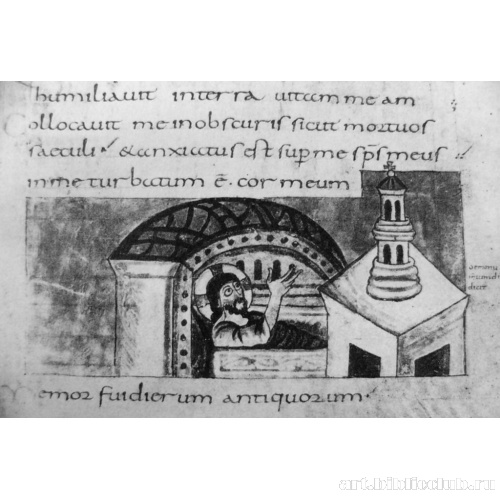 humiliavit interra vitam me am
Collocavit me in obscuris sicut mortuos
saeculi & anxiatus est sup me sps meus
in me turbatum ē cor meum
Memor fui dierum antiquorum
art.biblioclub.ru